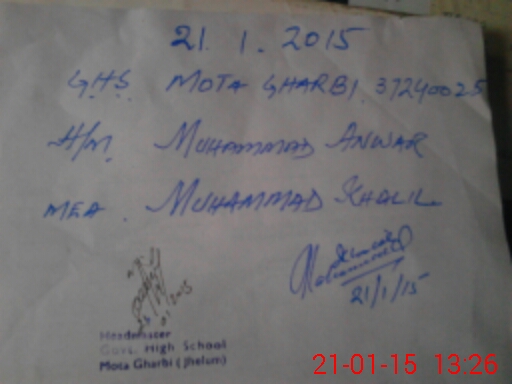 21.1.2015
GHS MOTA GHARBI 37240025
H/M MUHAMMAD ANWAR
MEA. MUHAMMAD KHALIL
21/1/15
Headmaster
Govt. High School
Mota Gharbi (Jhelum)
21-01-15 13:26